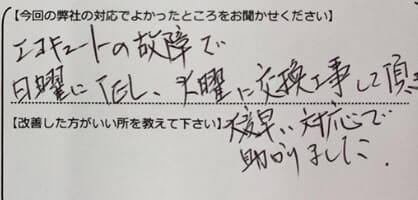 【今回の弊社の対応でよかったところをお聞かせください】
エコキュートの故障で
日曜にTELし、火曜に交換工事して頂き
【改善した方がいい所を教えて下さい】
大変早い対応で
助かりました。